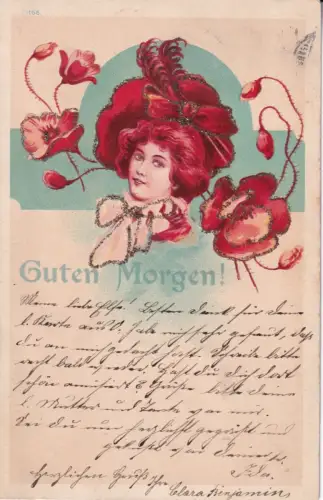 Guten Morgen!
Meine liebe Else! Besten Dank für deine
l. Karte aus O. Habe mich sehr gefreut, daß
du an mich gedacht hast. Schreibe bitte
recht bald wieder. Hast du dich dort
schön amüsiert? Grüße bitte deine
l. Mutter und Tante von mir.
Sei du nun herzlichst gegrüßt und
geküßt von deiner
Ida.
Herzlichen Gruß
Clara Benjamin